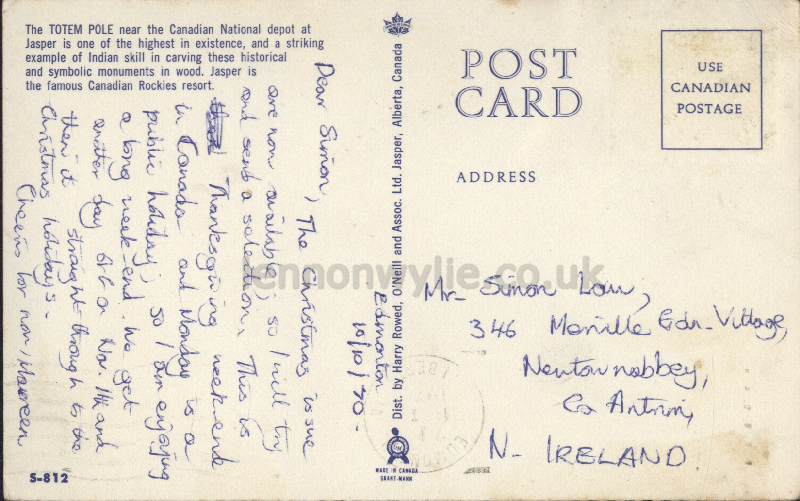 The TOTEM POLE near the Canadian National depot at
Jasper is one of the highest in existence, and a striking
example of Indian skill in carving these historical
and symbolic monuments in wood. Jasper is
the famous Canadian Rockies resort.
Edmonton
10/10/70.
Dear Simon, The Christmas issue
are now available, so I will try
and send a selection. This is
Thanksgiving week-end
in Canada and Monday is a
public holiday, so I am enjoying
a long week-end. We get
another day off on Nov. 11th and
then it straight through to the
Christmas holidays.
Cheers for now, Maureen
S-812
Dist. by Harry Rowed, O'Neill and Assoc. Ltd. Jasper, Alberta, Canada
MADE IN CANADA
GRANT-MANN
POST
CARD
ADDRESS
USE
CANADIAN
POSTAGE
Mr. Simon Law,
346 Merville Gdn. Village,
Newtownabbey,
Co Antrim,
N. IRELAND.
lennonwylie.co.uk